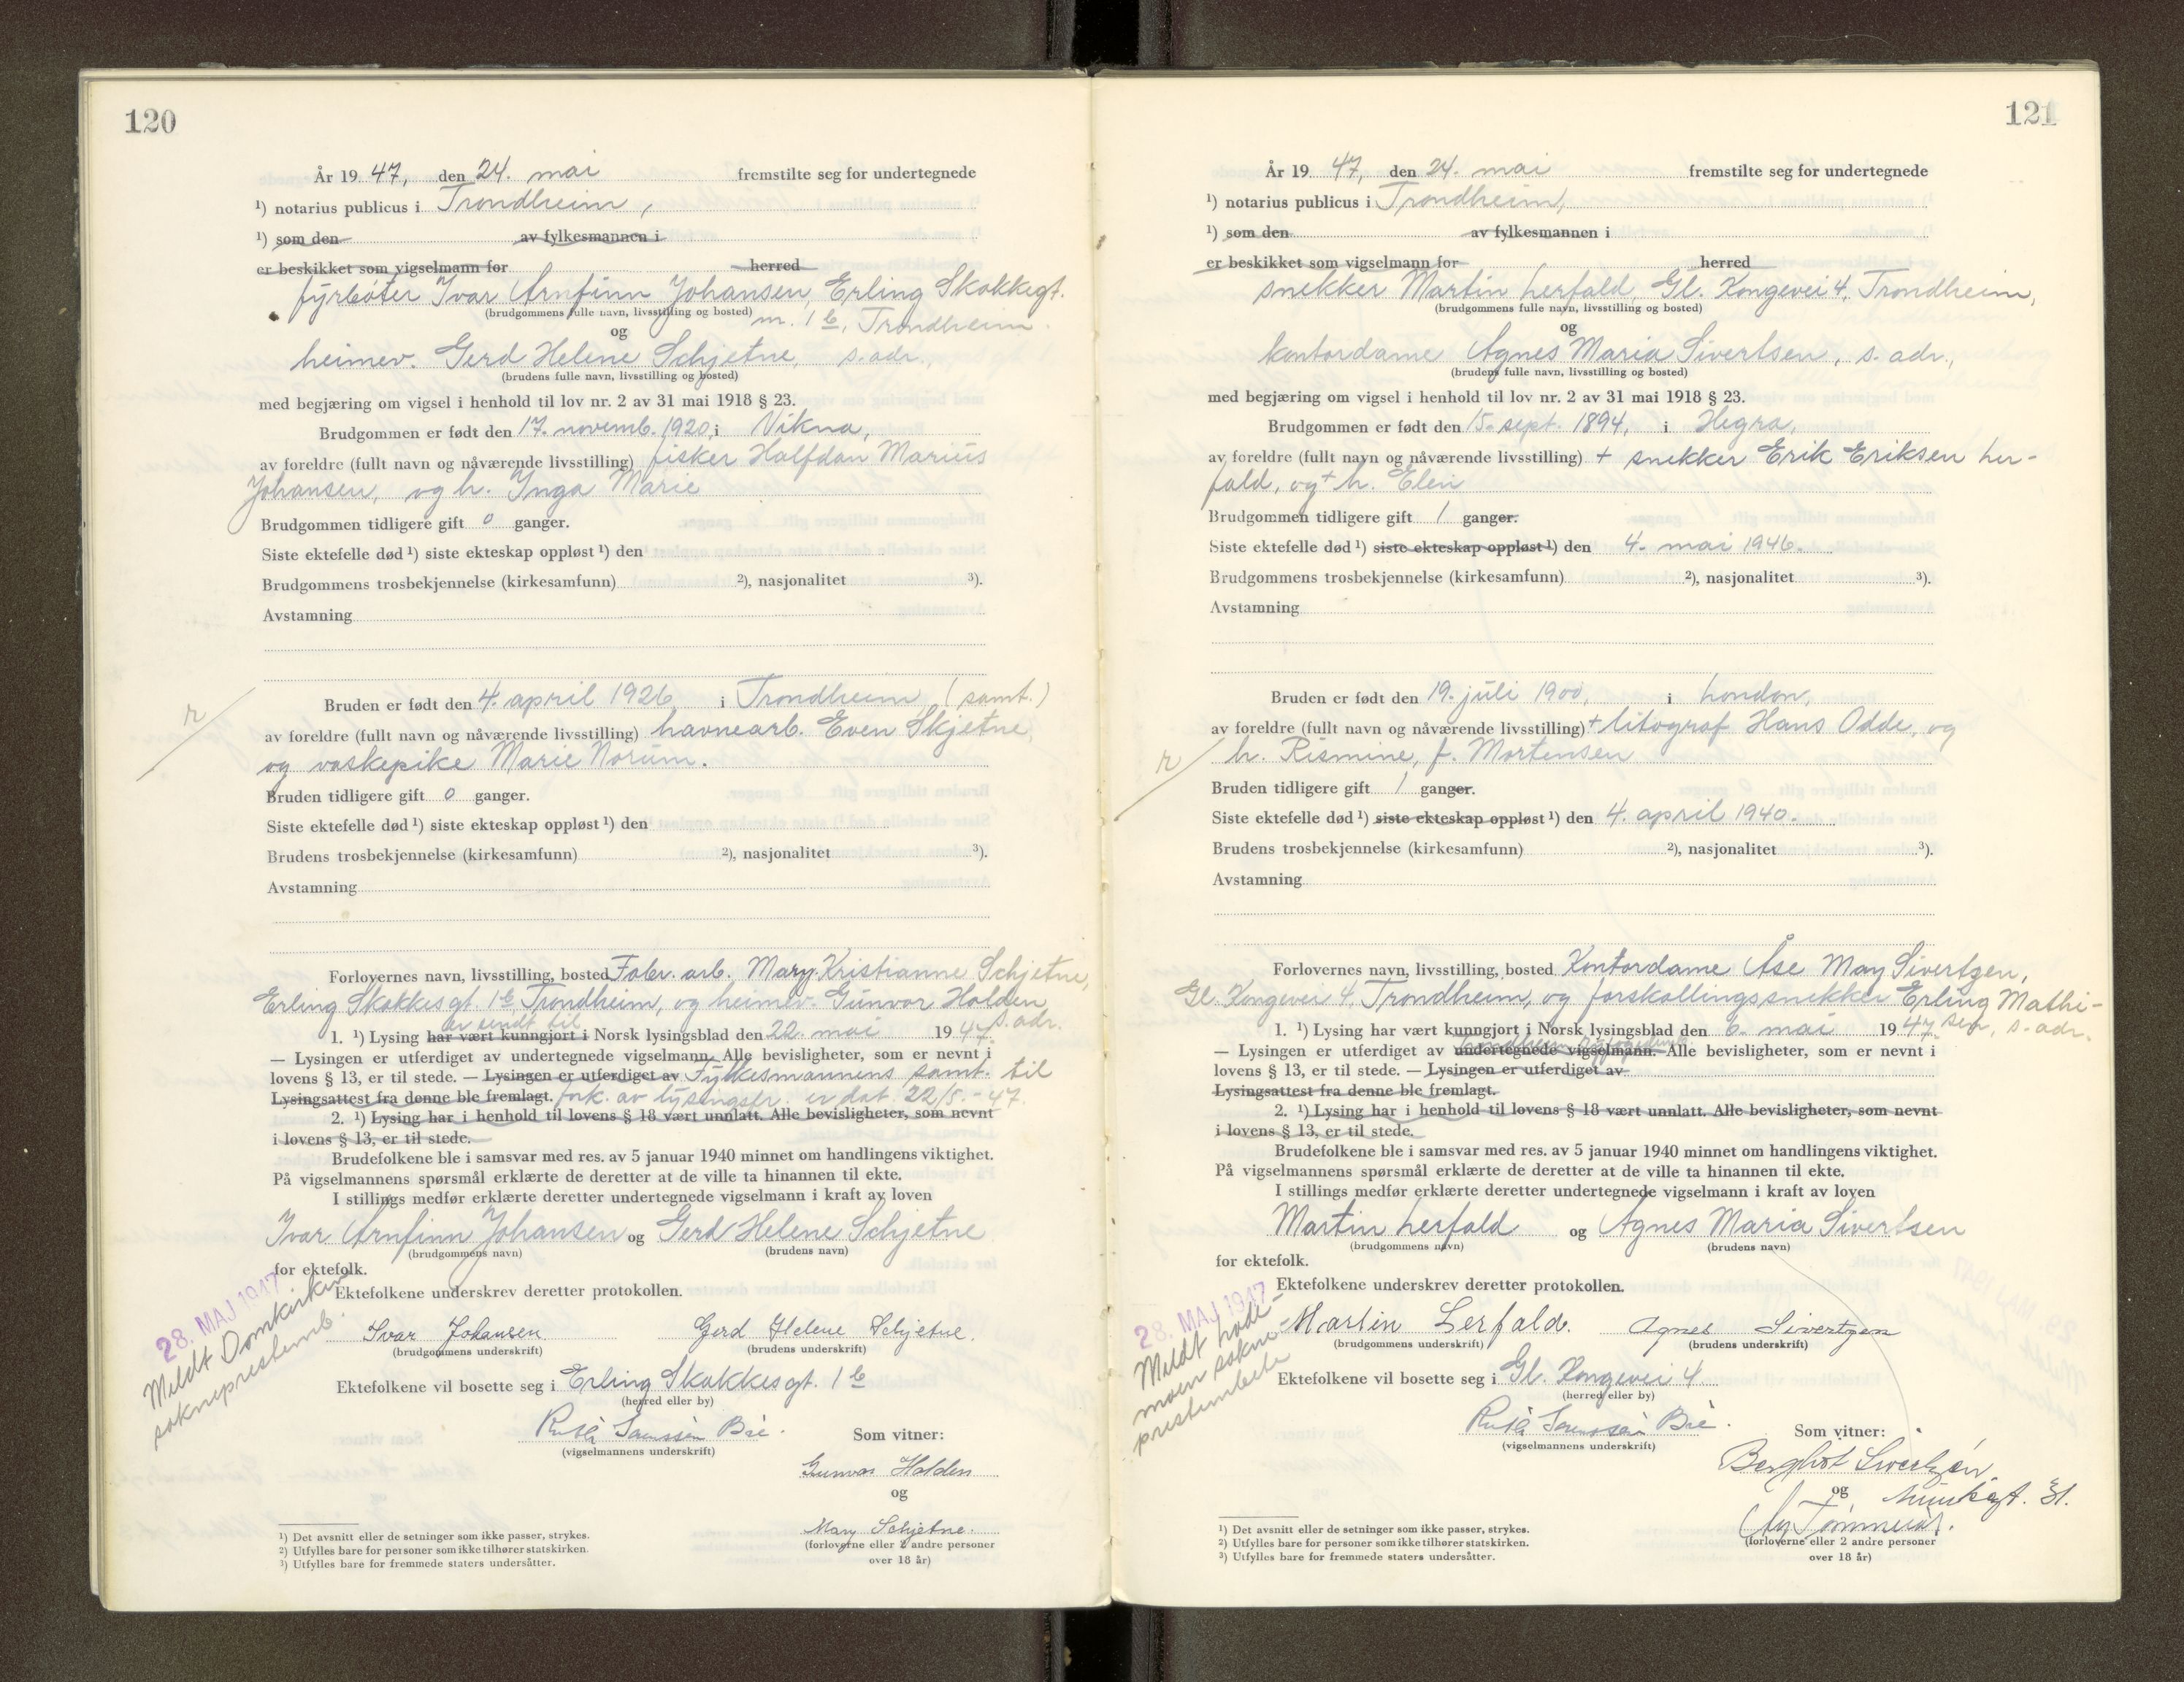 120
År 19 47, den 24. mai fremstilte seg for undertegnede
¹) notarius publicus i Trondheim,
¹) som den av fylkesmannen i
er beskikket som vigselmann for herred
fyrbøter Ivar Arnfinn Johansen, Erling Skakkegt.
(brudgommens fulle navn, livsstilling og bosted) m. 1 b, Trondheim.
og
heimev. Gerd Helene Schjetne, s. adr.,
(brudens fulle navn, livsstilling og bosted)
med begjæring om vigsel i henhold til lov nr. 2 av 31 mai 1918 § 23.
Brudgommen er født den 17. novemb. 1920, i Vikna,
av foreldre (fullt navn og nåværende livsstilling) fisker Halfdan Marius
Johansen, og h. Inga Marie
Brudgommen tidligere gift 0 ganger.
Siste ektefelle død ¹) siste ekteskap oppløst ¹) den
Brudgommens trosbekjennelse (kirkesamfunn) ²), nasjonalitet ³).
Avstamning
r
Bruden er født den 4. april 1926 i Trondheim, (samt.)
av foreldre (fullt navn og nåværende livsstilling) havnearb. Even Skjetne,
og vaskepike Marie Norum.
Bruden tidligere gift 0 ganger.
Siste ektefelle død ¹) siste ekteskap oppløst ¹) den
Brudens trosbekjennelse (kirkesamfunn) ²), nasjonalitet ³).
Avstamning
Forlovernes navn, livsstilling, bosted Fabr. arb. Mary Kristianne Schjetne,
Erling Skakkesgt. 1 b, Trondheim, og heimev. Gunvor Holden,
er sendt til s. adr.
1. ¹) Lysing har vært kunngjort i Norsk lysingsblad den 22. mai 19 47
— Lysingen er utferdiget av undertegnede vigselmann. Alle bevisligheter, som er nevnt i
lovens § 13, er til stede. — Lysingen er utferdiget av Fylkesmannens samt. til
Lysingsattest fra denne ble fremlagt. fork. av lysingsfr. er dat. 22/5.-47.
2. ¹) Lysing har i henhold til lovens § 18 vært unnlatt. Alle bevisligheter, som nevnt
i lovens § 13, er til stede.
Brudefolkene ble i samsvar med res. av 5 januar 1940 minnet om handlingens viktighet.
På vigselmannens spørsmål erklærte de deretter at de ville ta hinannen til ekte.
I stillings medfør erklærte deretter undertegnede vigselmann i kraft av loven
Ivar Arnfinn Johansen og Gerd Helene Schjetne
(brudgommens navn) (brudens navn)
for ektefolk.
Ektefolkene underskrev deretter protokollen.
28. MAJ 1947
Meldt Domkirken
sokneprestemb.
Ivar Johansen Gerd Helene Schjetne.
(brudgommens underskrift) (brudens underskrift)
Ektefolkene vil bosette seg i Erling Skakkesgt. 1 b
(herred eller by)
(vigselmannens underskrift) Som vitner:
Gunvor Holden
og
Mary Schjetne.
(forloverne eller 2 andre personer
over 18 år)
¹) Det avsnitt eller de setninger som ikke passer, strykes.
²) Utfylles bare for personer som ikke tilhører statskirken.
³) Utfylles bare for fremmede staters undersåtter.
121
År 19 47, den 24. mai fremstilte seg for undertegnede
¹) notarius publicus i Trondheim,
¹) som den av fylkesmannen i
er beskikket som vigselmann for herred
snekker Martin Lerfald, Gl. Kongevei 4, Trondheim,
(brudgommens fulle navn, livsstilling og bosted)
og
kontordame Agnes Maria Sivertsen, s. adr.,
(brudens fulle navn, livsstilling og bosted)
med begjæring om vigsel i henhold til lov nr. 2 av 31 mai 1918 § 23.
Brudgommen er født den 15. sept. 1894, i Hegra,
av foreldre (fullt navn og nåværende livsstilling) + snekker Erik Eriksen Ler-
fald, og + h. Elen
Brudgommen tidligere gift 1 ganger.
Siste ektefelle død ¹) siste ekteskap oppløst ¹) den 4. mai 1946.
Brudgommens trosbekjennelse (kirkesamfunn) ²), nasjonalitet ³).
Avstamning
Bruden er født den 19. juli 1900, i London,
av foreldre (fullt navn og nåværende livsstilling) + litograf Hans Odde, og
h. Rismine, f. Mortensen
r
Bruden tidligere gift 1 ganger.
Siste ektefelle død ¹) siste ekteskap oppløst ¹) den 4. april 1940.
Brudens trosbekjennelse (kirkesamfunn) ²), nasjonalitet ³).
Avstamning
Forlovernes navn, livsstilling, bosted Kontordame Åse May Sivertzen,
Gl. Kongevei 4, Trondheim, og forskallingssnekker Erling Mathi-
1. ¹) Lysing har vært kunngjort i Norsk lysingsblad den 6. mai 19 47 sen, s. adr.
Trondheim byfogdemb.
— Lysingen er utferdiget av undertegnede vigselmann. Alle bevisligheter, som er nevnt i
lovens § 13, er til stede. — Lysingen er utferdiget av
Lysingsattest fra denne ble fremlagt.
2. ¹) Lysing har i henhold til lovens § 18 vært unnlatt. Alle bevisligheter, som nevnt
i lovens § 13, er til stede.
Brudefolkene ble i samsvar med res. av 5 januar 1940 minnet om handlingens viktighet.
På vigselmannens spørsmål erklærte de deretter at de ville ta hinannen til ekte.
I stillings medfør erklærte deretter undertegnede vigselmann i kraft av loven
Martin Lerfald og Agnes Maria Sivertsen
(brudgommens navn) (brudens navn)
for ektefolk.
Ektefolkene underskrev deretter protokollen.
28. MAJ 1947
Meldt Lade-
moen sokne-
prestembete
Martin Lerfald. Agnes Sivertzen
(brudgommens underskrift) (brudens underskrift)
Ektefolkene vil bosette seg i Gl. Kongevei 4
(herred eller by)
(vigselmannens underskrift) Som vitner:
Bergliot Sivertzen
og
(forloverne eller 2 andre personer
over 18 år)
¹) Det avsnitt eller de setninger som ikke passer, strykes.
²) Utfylles bare for personer som ikke tilhører statskirken.
³) Utfylles bare for fremmede staters undersåtter.